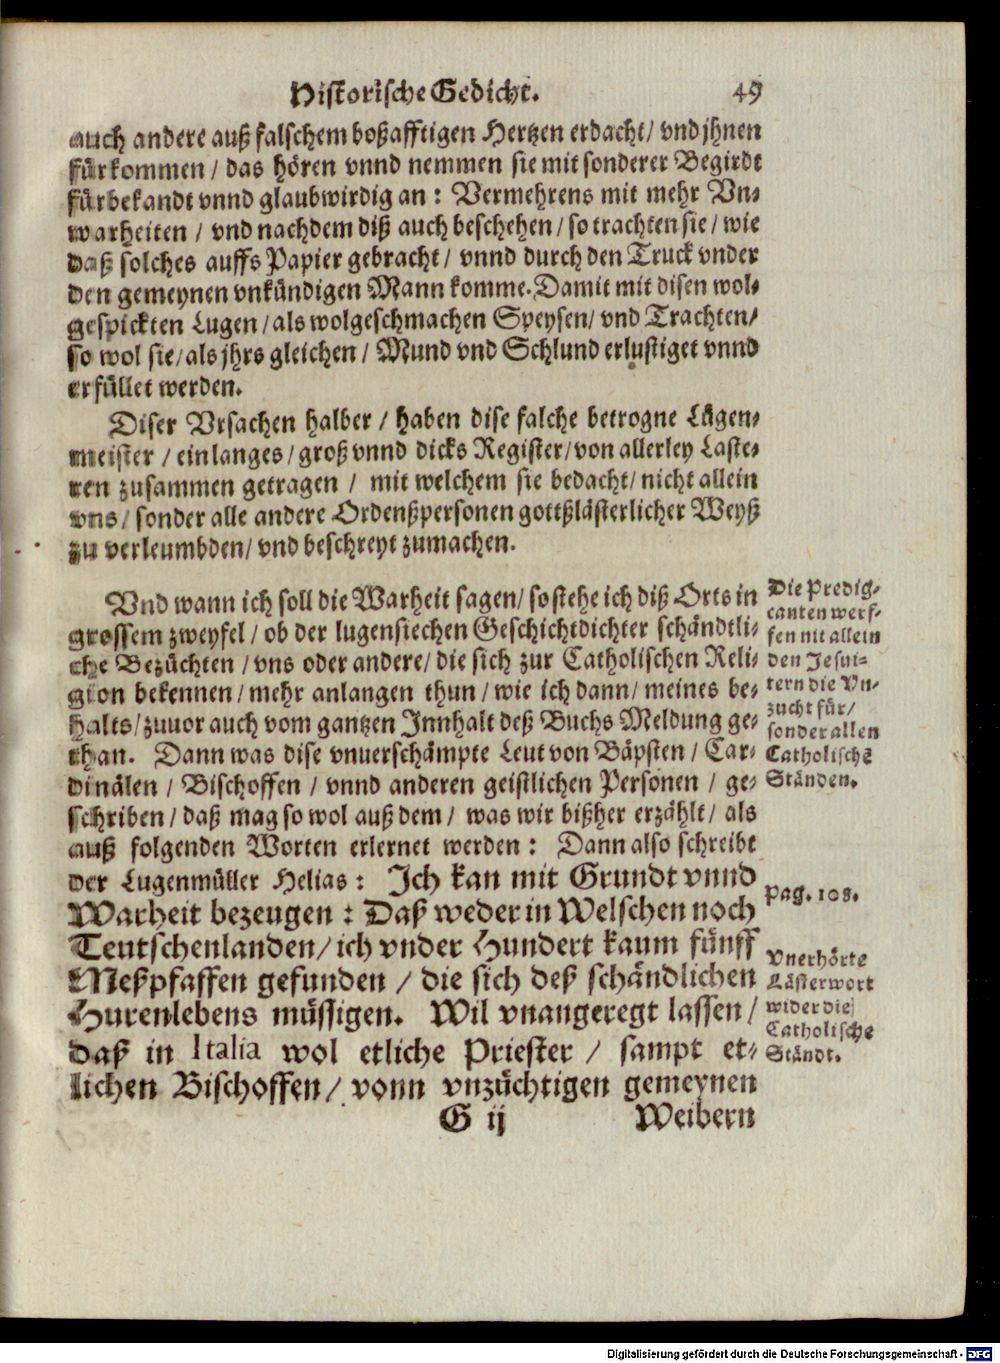 Historische Gedicht. 49
auch andere auß falschem boßafftigen Hertzen erdacht/ vnd jhnen
fürkommen / das hören vnnd nemmen sie mit sonderer Begirdt
für bekandt vnnd glaubwirdig an : Vermehrens mit mehr Vn-
warheiten / vnd nachdem diß auch beschehen/ so trachten sie/ wie
daß solches auffs Papier gebracht/ vnnd durch den Truck vnder
den gemeynen vnkündigen Mann komme. Damit mit disen wol-
gespickten Lugen/ als wolgeschmachen Speysen/ vnd Trachten/
so wol sie/ als jhrs gleichen/ Mund vnd Schlund erlustiget vnnd
erfüllet werden.
Diser Vrsachen halber / haben dise falche betrogne Lügen-
meister / ein langes/ groß vnnd dicks Register/ von allerley Laste-
ren zusammen getragen / mit welchem sie bedacht/ nicht allein
vns/ sonder alle andere Ordenßpersonen gottßlästerlicher Weyß
zu verleumbden/ vnd beschreyt zumachen.
Vnd wann ich soll die Warheit sagen/ so stehe ich diß Orts in
grossem zweyfel / ob der lugensiechen Geschichtdichter schändtli-
che Bezüchten / vns oder andere/ die sich zur Catholischen Reli-
gion bekennen/ mehr anlangen thun/ wie ich dann/ meines be-
halts/ zuuor auch vom gantzen Innhalt deß Buchs Meldung ge-
than. Dann was dise vnuerschämpte Leut von Bäpsten / Car-
dinälen / Bischoffen / vnnd anderen geistlichen Personen / ge-
schriben/ daß mag so wol auß dem/ was wir bißher erzählt/ als
auß folgenden Worten erlernet werden : Dann also schreibt
der Lugenmüller Helias : Ich kan mit Grundt vnnd
Warheit bezeugen : Daß weder in Welschen noch
Teutschenlanden/ ich vnder Hundert kaum fünff
Meßpfaffen gefunden / die sich deß schändlichen
Hurenlebens müssigen. Wil vnangeregt lassen/
daß in Italia wol etliche Priester / sampt et-
lichen Bischoffen/ vonn vnzüchtigen gemeynen
G ij Weibern
Die Predig-
canten werf-
fen nit allein
den Jesui-
tern die Vn-
zucht für/
sonder allen
Catholischẽ
Ständen.
pag. 108.
Vnerhörte
Lästerwort
wider die
Catholische
Ständt.
Digitalisierung gefördert durch die Deutsche Forschungsgemeinschaft - DFG